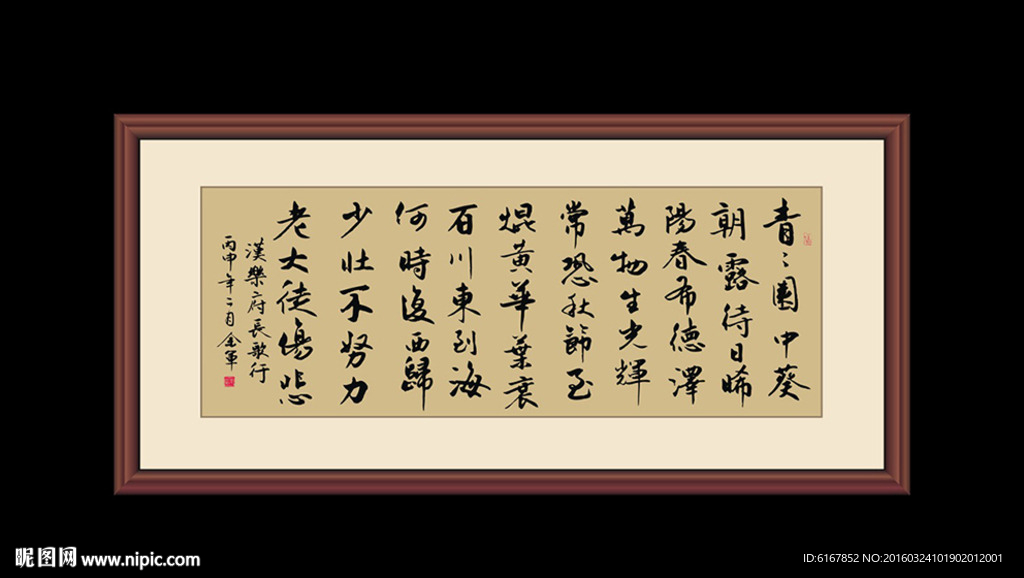 青〻園中葵
朝露待日晞
陽春布德澤
萬物生光輝
常恐秋節至
焜黃華葉衰
百川東到海
何時復西歸
少壯不努力
老大徒傷悲
漢樂府長歌行
丙申年二月金軍
昵图网 www.nipic.com
ID:6167852 NO:20160324101902012001